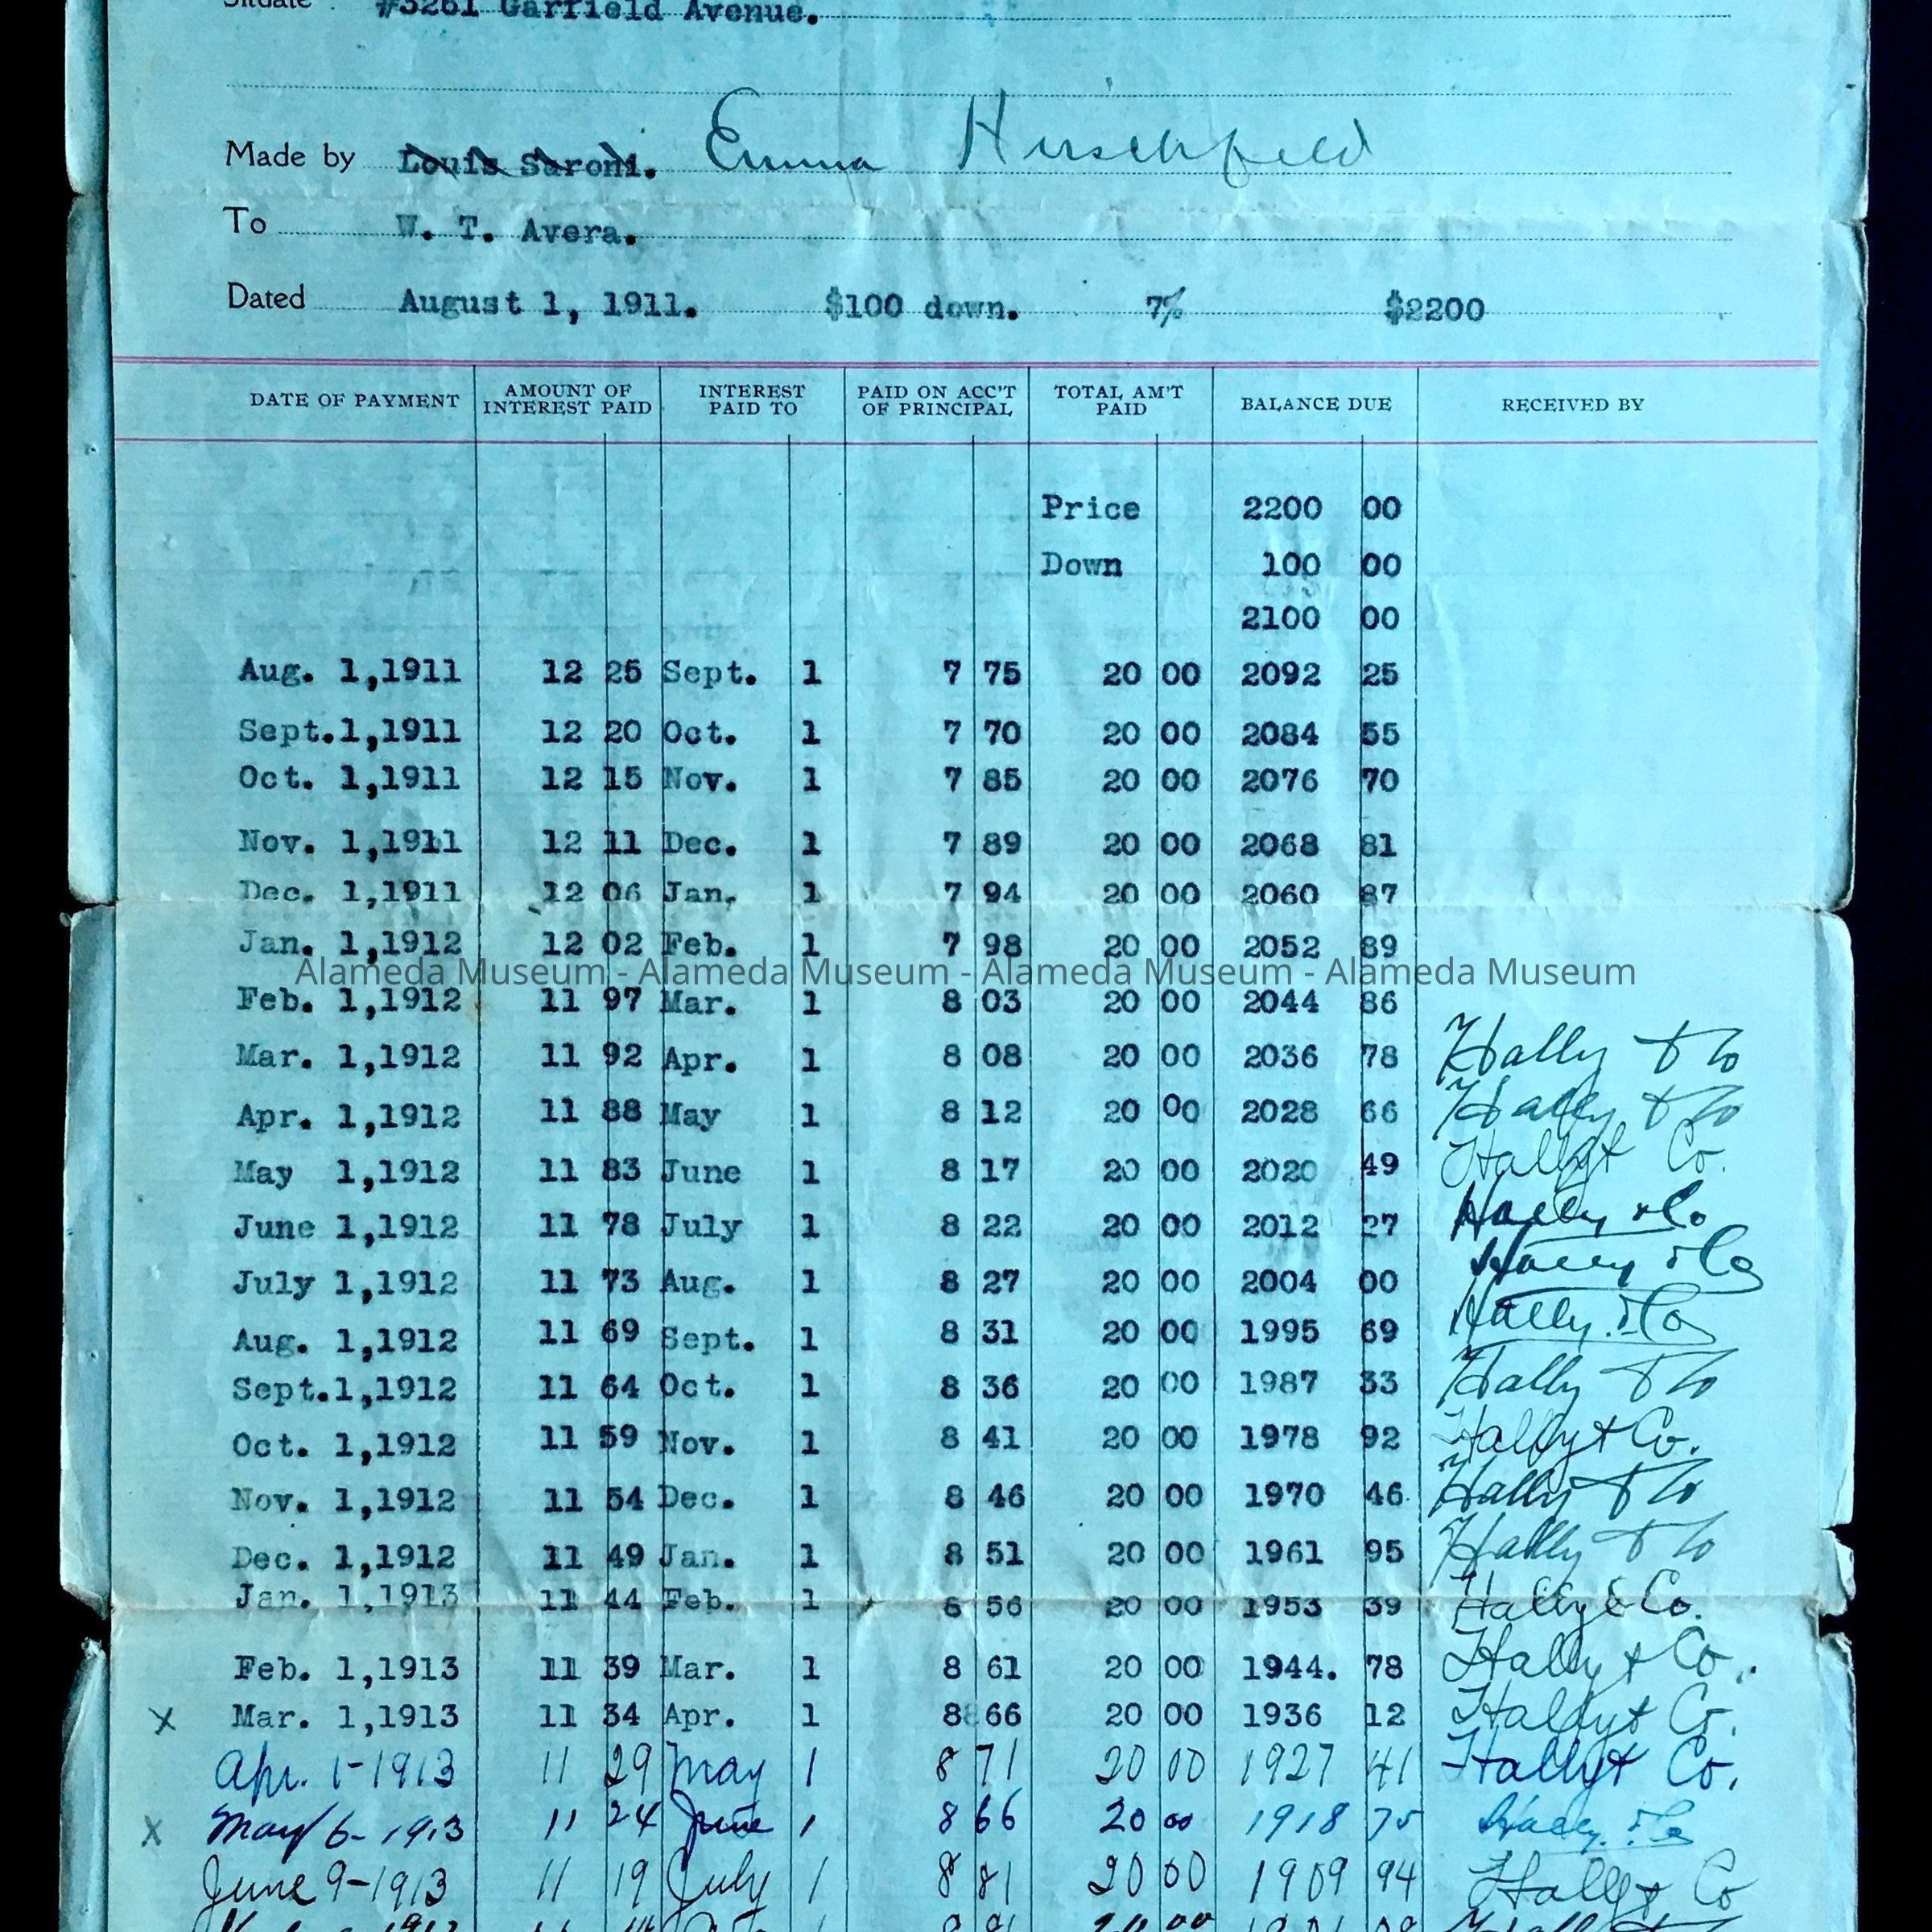 Situate #3261 Garfield Avenue.
Made by Louis Saroni. Emma Hirschfeld
To W. T. Avera.
Dated August 1, 1911. $100 down. 7% $2200
DATE OF PAYMENT AMOUNT OF INTEREST PAID INTEREST PAID TO PAID ON ACC'T OF PRINCIPAL TOTAL AM'T PAID BALANCE DUE RECEIVED BY
Price 2200 00
Down 100 00
2100 00
Aug. 1,1911 12 25 Sept. 1 7 75 20 00 2092 25
Sept.1,1911 12 20 Oct. 1 7 70 20 00 2084 55
Oct. 1,1911 12 15 Nov. 1 7 85 20 00 2076 70
Nov. 1,1911 12 11 Dec. 1 7 89 20 00 2068 81
Dec. 1,1911 12 06 Jan. 1 7 94 20 00 2060 87
Jan. 1,1912 12 02 Feb. 1 7 98 20 00 2052 89
Alameda Museum - Alameda Museum - Alameda Museum - Alameda Museum
Feb. 1,1912 11 97 Mar. 1 8 03 20 00 2044 86
Mar. 1,1912 11 92 Apr. 1 8 08 20 00 2036 78 Hally & Co
Apr. 1,1912 11 88 May 1 8 12 20 00 2028 66 Hally & Co
May 1,1912 11 83 June 1 8 17 20 00 2020 49 Hally & Co.
June 1,1912 11 78 July 1 8 22 20 00 2012 27 Hally & Co
July 1,1912 11 73 Aug. 1 8 27 20 00 2004 00 Hally & Co
Aug. 1,1912 11 69 Sept. 1 8 31 20 00 1995 69 Hally & Co
Sept.1,1912 11 64 Oct. 1 8 36 20 00 1987 33 Hally & Co
Oct. 1,1912 11 59 Nov. 1 8 41 20 00 1978 92 Hally & Co.
Nov. 1,1912 11 54 Dec. 1 8 46 20 00 1970 46 Hally & Co
Dec. 1,1912 11 49 Jan. 1 8 51 20 00 1961 95 Hally & Co
Jan. 1,1913 11 44 Feb. 1 8 56 20 00 1953 39 Hally & Co.
Feb. 1,1913 11 39 Mar. 1 8 61 20 00 1944. 78 Hally & Co.
x Mar. 1,1913 11 34 Apr. 1 8 66 20 00 1936 12 Hally & Co.
Apr. 1-1913 11 29 May 1 8 71 20 00 1927 41 Hally & Co.
x May 6-1913 11 24 June 1 8 66 20 00 1918 75 Hally & Co
June 9-1913 11 19 July 1 8 81 20 00 1909 94 Hally & Co